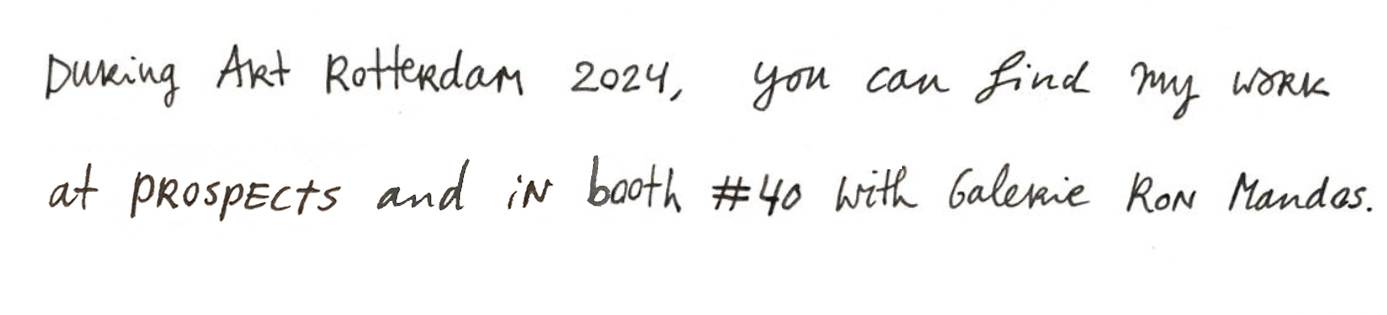 During Art Rotterdam 2024, you can find my work
at PROSPECTS and in booth #40 with Galerie Ron Mandos.